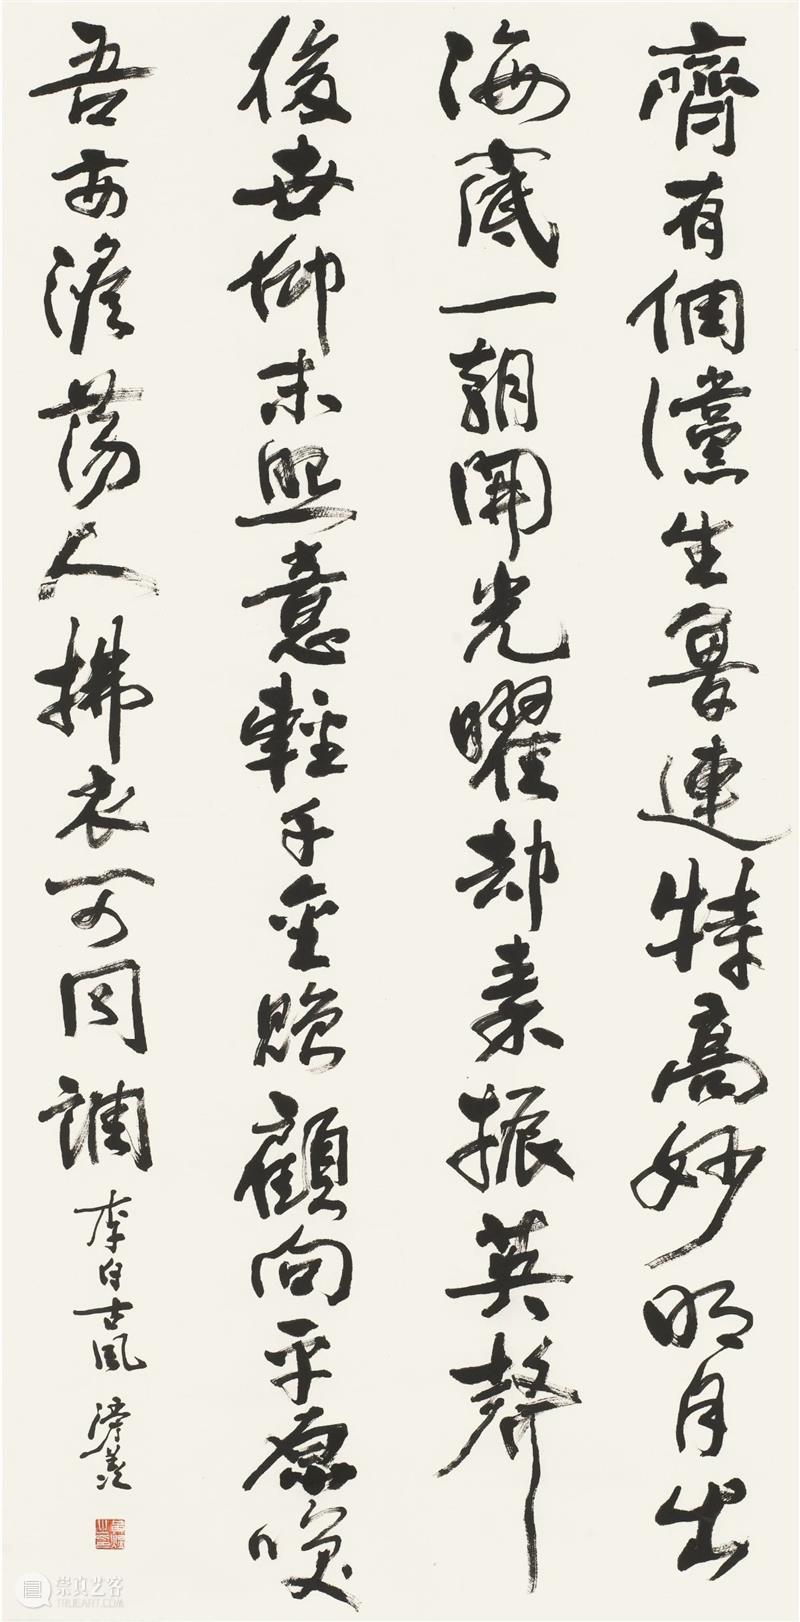 齊有倜儻生魯連特高妙明月出
海底一朝開光曜却秦振英聲
後世仰末照意輕千金贈顧向平原咲
吾亦澹蕩人拂衣可同調
李白古風
崇真艺客
TRUEART.COM